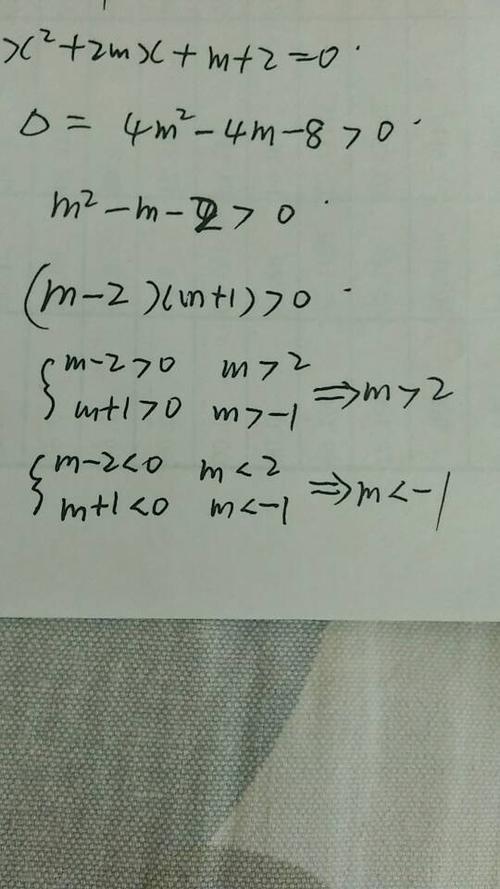 x²+2mx+m+2=0.
Δ= 4m²-4m-8>0.
m²-m-2>0.
(m-2)(m+1)>0.
{m-2>0 m>2
m+1>0 m>-1 ⇒m>2
{m-2<0 m<2
m+1<0 m<-1 ⇒m<-1